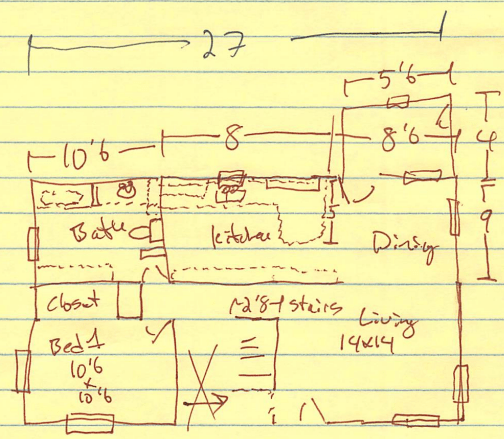 27
5'6
8
8'6
4
10'6
9
5
Bath
Kitchen
Dining
Closet
2'8-1 stairs
Living
14x14
Bed 1
10'6
x
10'6